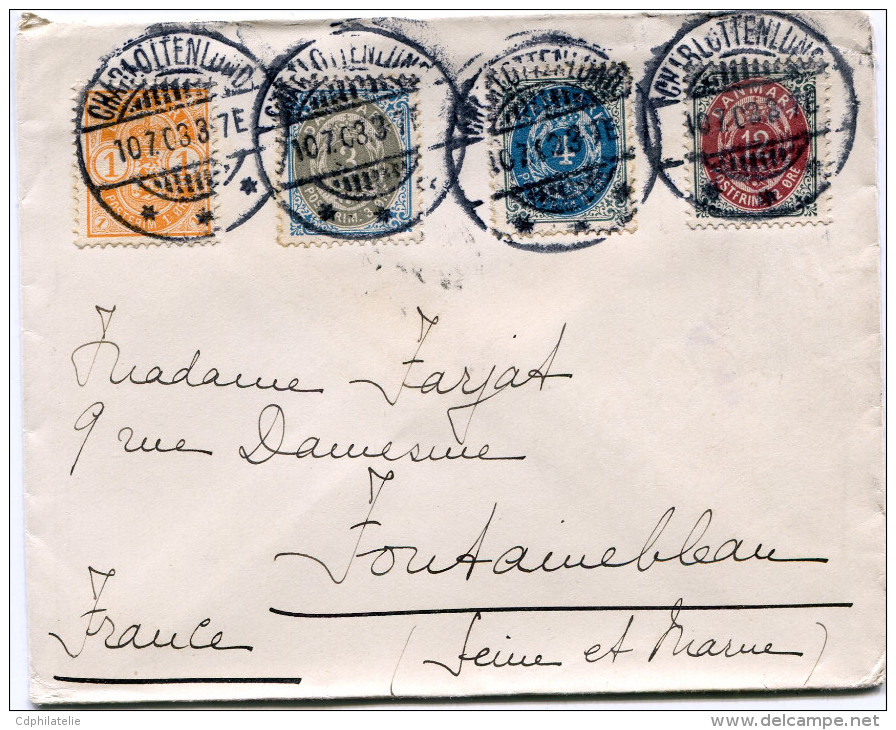 CHARLOTTENLUND CHARLOTTENLUND CHARLOTTENLUND CHARLOTTENLUND
10.7.03.3-7E 10.7.03.3 10.7.0 3-7E 10.7.03.3 E
1 1 3 4 DANMARK 12
POSTFRIM. 1 ØRE POSTFRIM. 3 ØRE POSTFRIM. 12 ØRE
Madame Farjat
9 rue Damesme
Fontainebleau
France (Seine et Marne)
Cdphilatelie
www.delcampe.net